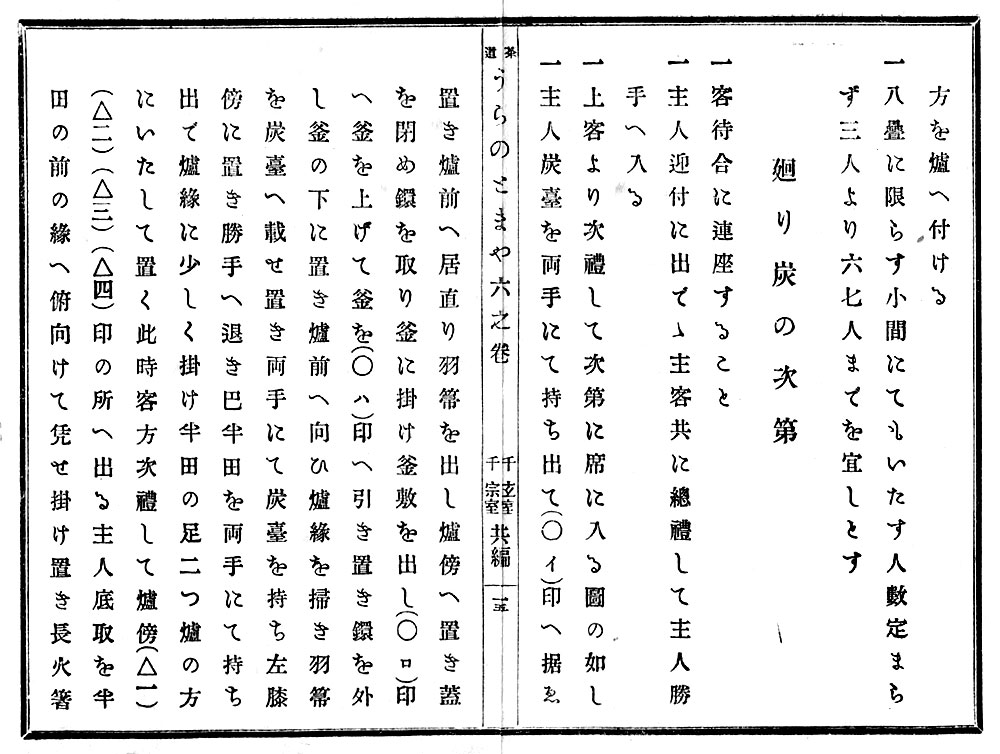 方を爐へ付ける
一八疊に限らす小間にてもいたす人數定まら
ず三人より六七人までを宜しとす
廻り炭の次第
一客待合に連座すること
一主人迎付に出でゝ主客共に總禮して主人勝
手へ入る
一上客より次禮して次第に席に入る圖の如し
一主人炭臺を両手にて持ち出て(〇イ)印へ据ゑ
茶道
うらのとまや六之卷
千玄室
千宗室
共編
一五
置き爐前へ居直り羽箒を出し爐傍へ置き蓋
を閉め鐶を取り釜に掛け釜敷を出し(〇ロ)印
へ釜を上げて釜を(〇ハ)印へ引き置き鐶を外
し釜の下に置き爐前へ向ひ爐緣を掃き羽箒
を炭臺へ載せ置き両手にて炭臺を持ち左膝
傍に置き勝手へ退き巴半田を両手にて持ち
出で爐緣に少しく掛け半田の足二つ爐の方
にいたして置く此時客方次禮して爐傍(△一)
(△二)(△三)(△四)印の所へ出る主人底取を半
田の前の緣へ俯向けて凭せ掛け置き長火箸